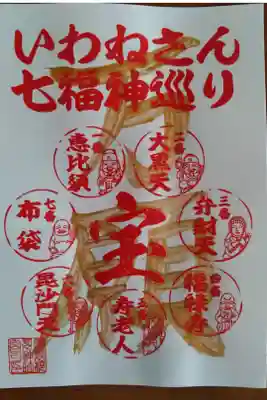 いわねさん
七福神巡り
一番
恵比須
二番
大黒天
三番
弁財天
福禄寿
寿老人
毘沙門天
七番
布袋
宝